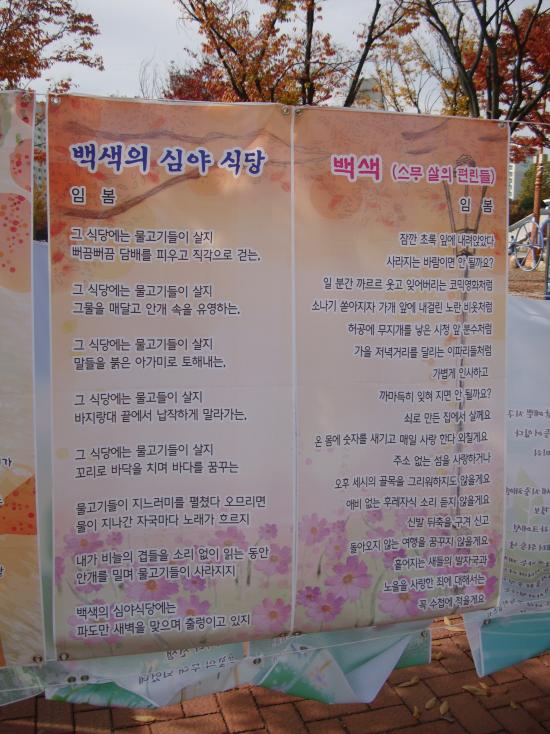 백색의 심야 식당
임 봄
그 식당에는 물고기들이 살지
뻐끔뻐끔 담배를 피우고 직각으로 걷는.
그 식당에는 물고기들이 살지
그물을 매달고 안개 속을 유영하는.
그 식당에는 물고기들이 살지
말들을 붉은 아가미로 토해내는.
그 식당에는 물고기들이 살지
바지랑대 끝에서 납작하게 말라가는.
그 식당에는 물고기들이 살지
꼬리로 바닥을 치며 바다를 꿈꾸는
물고기들이 지느러미를 펼쳤다 오므리면
물이 지나간 자국마다 노래가 흐르지
내가 비늘의 겹들을 소리 없이 읽는 동안
안개를 밀며 물고기들이 사라지지
백색의 심야식당에는
파도만 새벽을 맞으며 출렁이고 있지
백색 (스무 살의 편린들)
임 봄
잠깐 초록 잎에 내려앉았다
사라지는 바람이면 안 될까요?
일 분간 까르르 웃고 잊어버리는 코믹영화처럼
소나기 쏟아지자 가게 앞에 내걸린 노란 비옷처럼
허공에 무지개를 낳은 시청 앞 분수처럼
가을 저녁거리를 달리는 이파리들처럼
가볍게 인사하고
까마득히 잊혀 지면 안 될까요?
쇠로 만든 집에서 살께요
온 몸에 숫자를 새기고 매일 사랑 한다 외칠게요
주소 없는 섬을 사랑하거나
오후 세시의 골목을 그리워하지도 않을게요
애비 없는 후레자식 소리 듣지 않을게요
신발 뒤축을 구겨 신고
돌아오지 않는 여행을 꿈꾸지 않을게요
흩어지는 새들의 발자국과
노을을 사랑한 죄에 대해서는
꼭 수첩에 적을게요